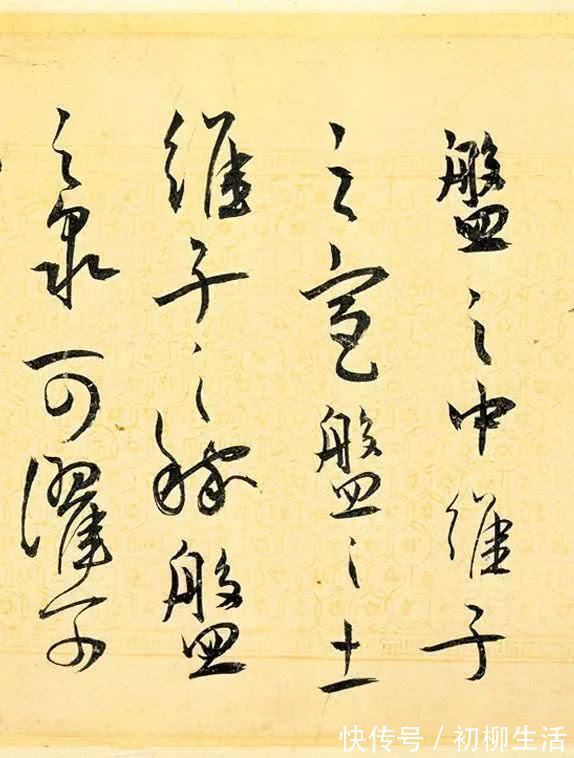 盤之中維子
之宮盤之土
維子之稼盤
之泉可濯可
快传号/初柳生活